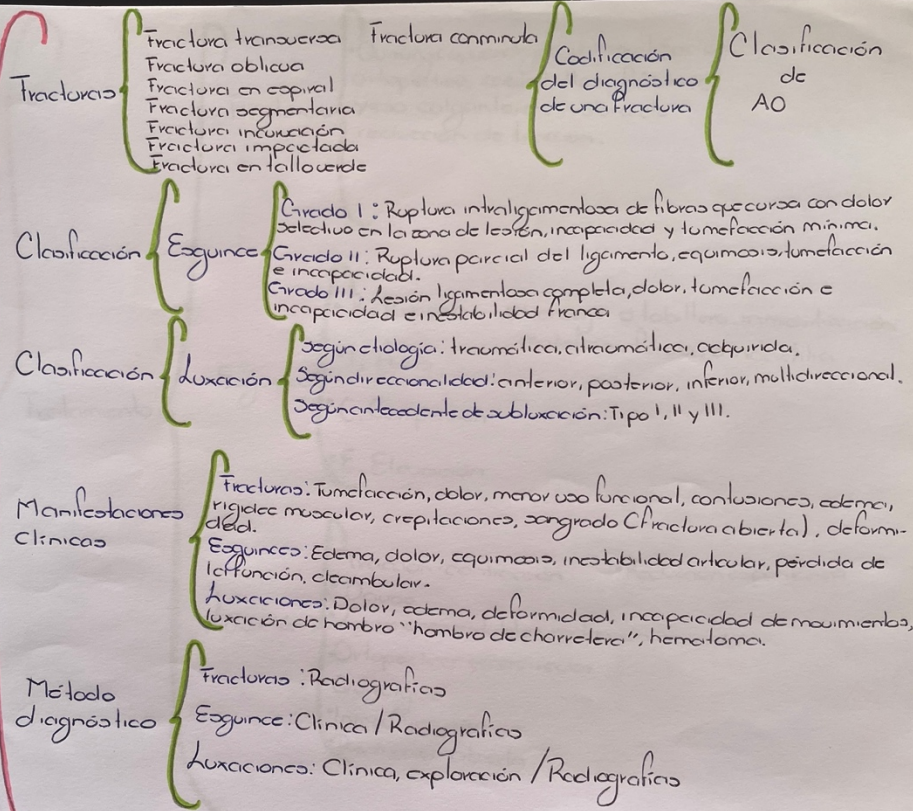 Fracturas
Fractura transversa
Fractura oblicua
Fractura en espiral
Fractura segmentaria
Fractura incurvación
Fractura impactada
Fractura en tallo verde
Fractura conminuta
Codificación
del diagnóstico
de una fractura
Clasificación
de
AO
Clasificación
Esguince
Grado I : Ruptura intraligamentosa de fibras que cursa con dolor
selectivo en la zona de lesión, incapacidad y tumefacción mínima.
Grado II : Ruptura parcial del ligamento, equimosis, tumefacción
e incapacidad.
Grado III : Lesión ligamentosa completa, dolor, tumefacción e
incapacidad e inestabilidad franca
Clasificación
Luxación
Según etiología: traumática, atraumática, adquirida.
Según direccionalidad: anterior, posterior, inferior, multidireccional.
Según antecedente de subluxación: Tipo I, II y III.
Manifestaciones
clínicas
Fracturas: Tumefacción, dolor, menor uso funcional, contusiones, edema,
rigidez muscular, crepitaciones, sangrado (fractura abierta), deformi-
dad.
Esguinces: Edema, dolor, equimosis, inestabilidad articular, pérdida de
la función, deambular.
Luxaciones: Dolor, edema, deformidad, incapacidad de movimientos,
luxación de hombro "hombro de charretera", hematoma.
Método
diagnóstico
Fracturas : Radiografías
Esguince: Clínica / Radiografías
Luxaciones: Clínica, exploración / Radiografías